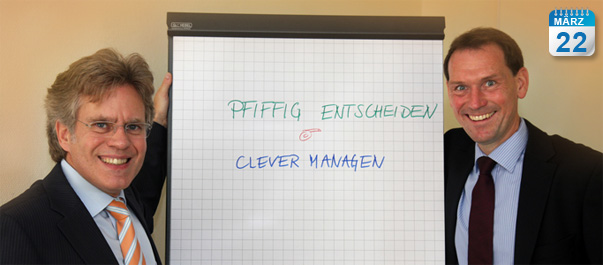 MÄRZ
22
PFIFFIG ENTSCHEIDEN
CLEVER MANAGEN